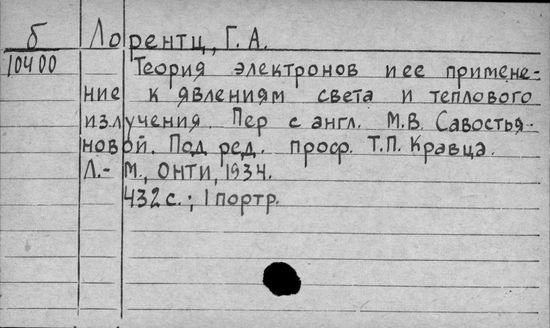 б Лорентц, Г. А.
10400 Теория электронов и ее примене-
ние к явлениям света и теплового
излучения. Пер с англ. М.В. Савостья-
новой. Под ред. проф. Т.П. Кравца.
Л.-М., ОНТИ, 1934.
432 с.; 1 портр.